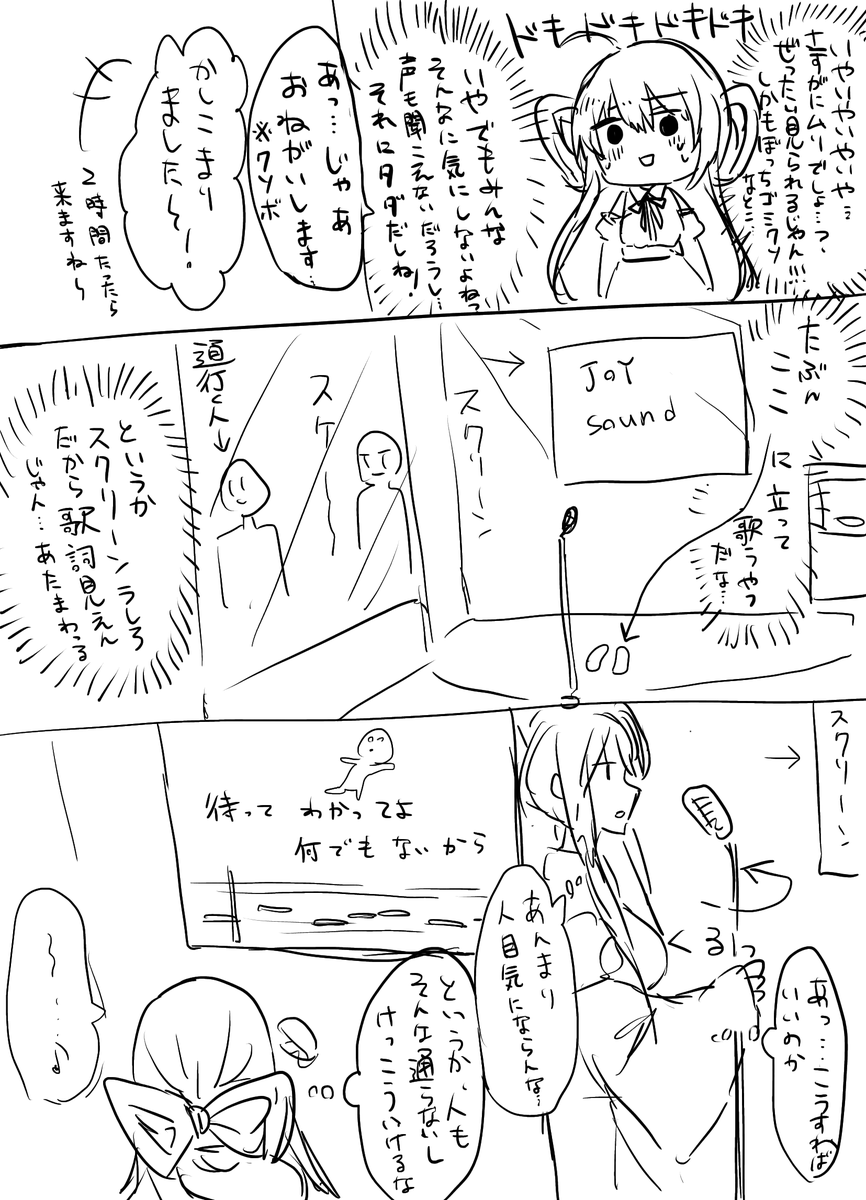 ドキドキドキドキ
いやいやいやいや…
さすがにムリでしょ…っ、
ぜったい見られるじゃん!!!
しかもぼっちゴミクソ
なとこ…
いやでもみんな
そんなに気にしないよねっ
声も聞こえないだろうし…
それにタダだしね!
あっ…じゃあ
おねがいします…
※クソボ
かしこまり
ました〜!
2時間たったら
来ますね〜
たぶん
ここ
に立って
歌うやつ
だな…
JOY
Sound
→
スクリーン
スケ〜
道行く人↓
というか
スクリーンうしろ
だから歌詞見えん
じゃん…あたまわっる
スクリーン
→
あっ…こうすれば
いいのか
くるっ
あんまり
人目気にならんな…
待って わかってよ
何でもないから
というか、人も
そんな通らないし
けっこういけるな
〜…♪